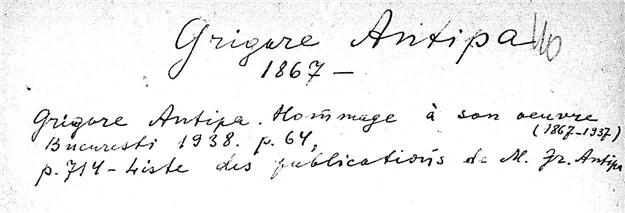 Grigore Antipa 110
1867 —
Grigore Antipa. Hommage à son oeuvre
(1867-1937)
Bucuresti 1938. p. 64,
p. 714 - Liste des publications de M. Gr. Antipa